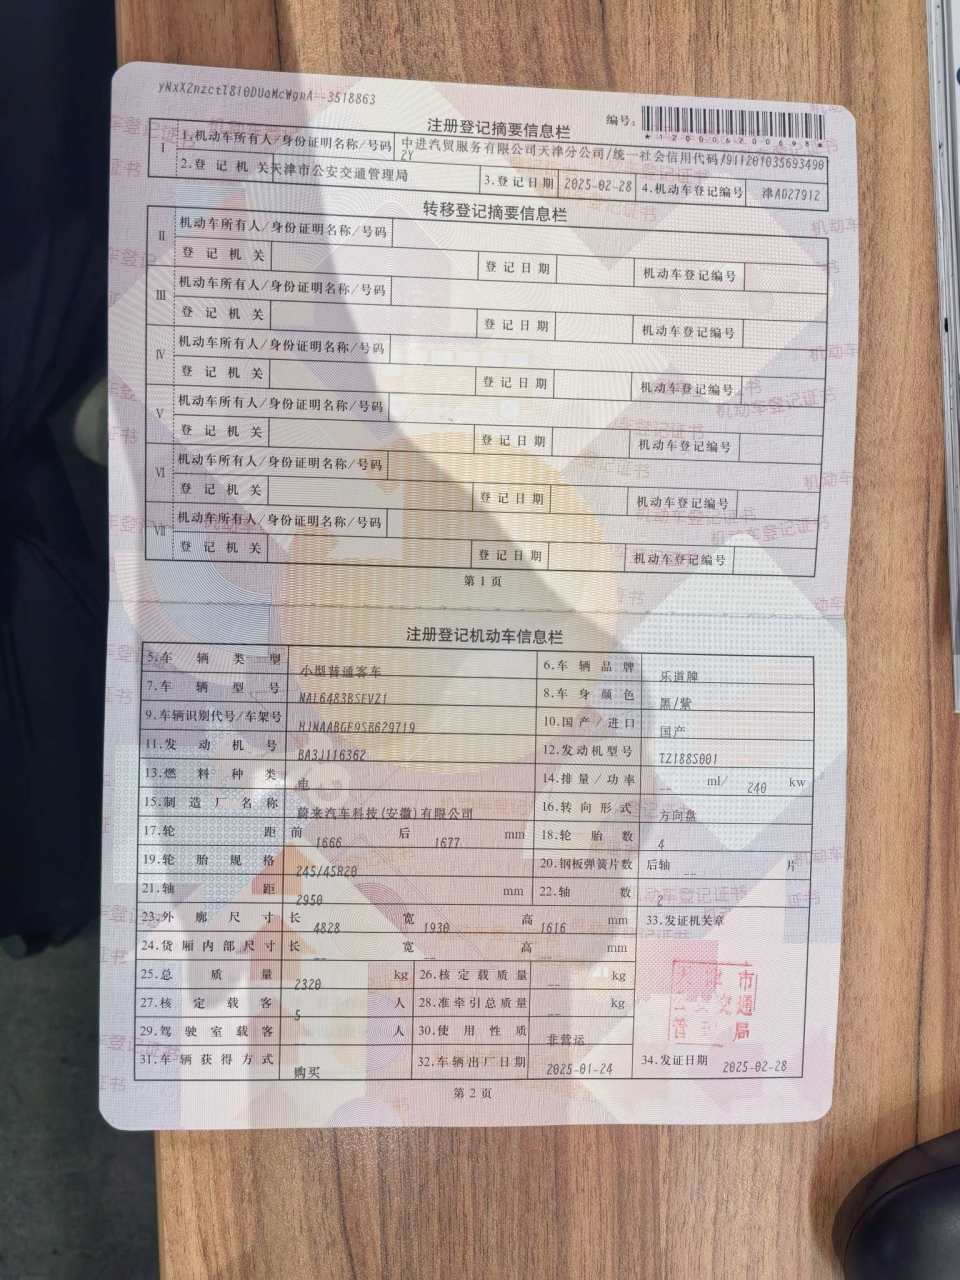 yNxX2nzctT810DUaMcWgnA==3518863
注册登记摘要信息栏
编号:
*120006700698*
I
1.机动车所有人/身份证明名称/号码 中进汽贸服务有限公司天津分公司/统一社会信用代码/911201035693490
2Y
2.登记机关 天津市公安交通管理局 3.登记日期 2025-02-28 4.机动车登记编号 津AD27912
转移登记摘要信息栏
II 机动车所有人/身份证明名称/号码
登记机关 登记日期 机动车登记编号
III 机动车所有人/身份证明名称/号码
登记机关 登记日期 机动车登记编号
IV 机动车所有人/身份证明名称/号码
登记机关 登记日期 机动车登记编号
V 机动车所有人/身份证明名称/号码
登记机关 登记日期 机动车登记编号
VI 机动车所有人/身份证明名称/号码
登记机关 登记日期 机动车登记编号
VII 机动车所有人/身份证明名称/号码
登记机关 登记日期 机动车登记编号
第1页
注册登记机动车信息栏
5.车辆类型 小型普通客车 6.车辆品牌 乐道牌
7.车辆型号 NAL6483BSEVZ1 8.车身颜色 黑/紫
9.车辆识别代号/车架号 HJNAABGF9SB629719 10.国产/进口 国产
11.发动机号 BA3J116362 12.发动机型号 TZ188S001
13.燃料种类 电 14.排量/功率 -- ml/ 240 kw
15.制造厂名称 蔚来汽车科技(安徽)有限公司 16.转向形式 方向盘
17.轮距 前 1666 后 1677 mm 18.轮胎数 4
19.轮胎规格 245/45R20 20.钢板弹簧片数 后轴 -- 片
21.轴距 2950 mm 22.轴数 2
23.外廓尺寸 长 4828 宽 1930 高 1616 mm 33.发证机关章
24.货厢内部尺寸 长 -- 宽 -- 高 -- mm
25.总质量 2320 kg 26.核定载质量 -- kg
27.核定载客 5 人 28.准牵引总质量 -- kg
29.驾驶室载客 人 30.使用性质 非营运
31.车辆获得方式 购买 32.车辆出厂日期 2025-01-24 34.发证日期 2025-02-28
天津市
公安交通
管理局
第2页